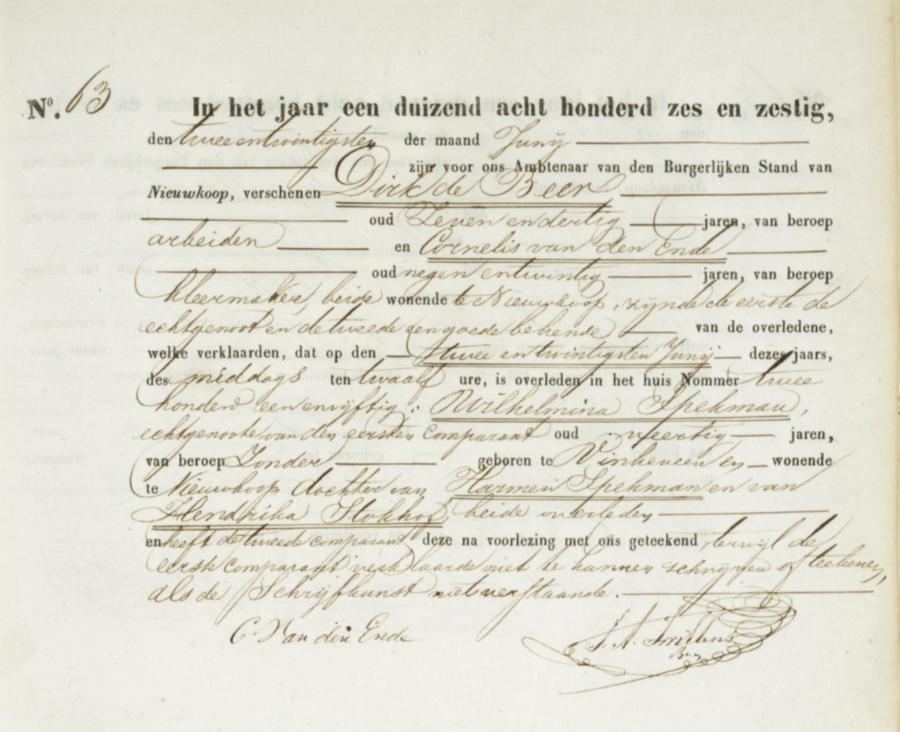 No. 63 In het jaar een duizend acht honderd zes en zestig,
den twee en twintigsten der maand Junij
zijn voor ons Ambtenaar van den Burgerlijken Stand van
Nieuwkoop, verschenen Dirk de Beer
oud Zeven en dertig jaren, van beroep
arbeider en Cornelis van den Ende
oud negen en twintig jaren, van beroep
kleermaker, beide wonende te Nieuwkoop, zijnde de eerste de
echtgenoot en de tweede een goede bekende van de overledene,
welke verklaarden, dat op den twee en twintigsten Junij dezes jaars,
des middags ten twaalf ure, is overleden in het huis Nommer twee
honderd een en vijftig: Wilhelmina Spekman,
echtgenoote van den eersten Comparant oud veertig jaren,
van beroep Zonder geboren te Vinkeveen en wonende
te Nieuwkoop dochter van Harmen Spekman en van
Hendrika Stokhof beide overleden
en heeft de tweede comparant deze na voorlezing met ons geteekend terwijl de
eerste Comparant verklaarde niet te kunnen schrijven of teekenen,
als de Schrijfkunst niet verstaande.
C. Van den Ende